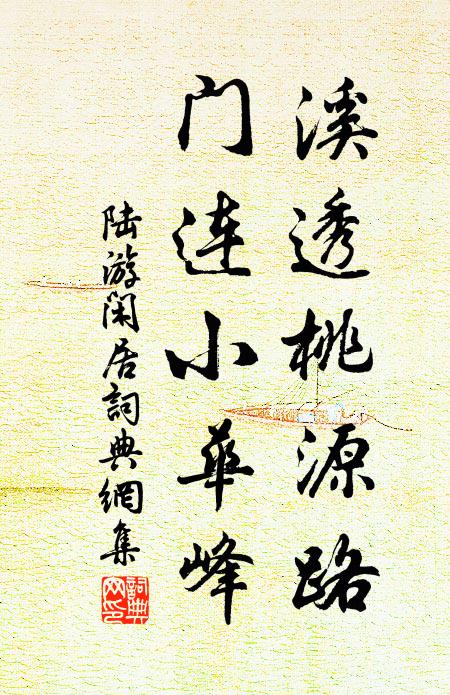 溪透桃源路
门连小华峰
陆游闲居詞典網集
詞典网印